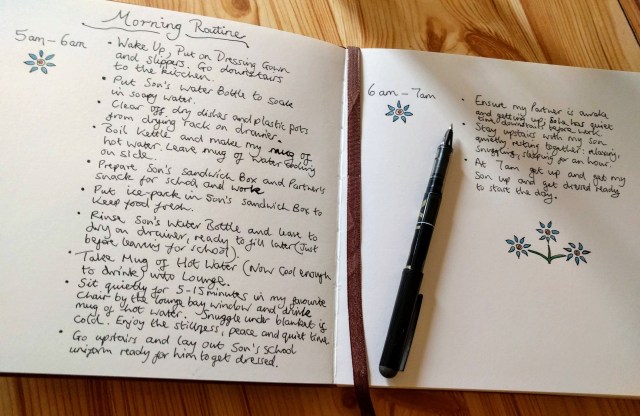 Morning Routine
5am – 6am
• Wake Up, Put on Dressing Gown
and slippers. Go downstairs
to the kitchen.
• Put Son's water Bottle to soak
in soapy water.
• Clear off dry dishes and plastic pots
from drying rack on drainer.
• Boil Kettle and make my mug of
hot water. Leave mug of water cooling
on side.
• Prepare Son's Sandwich Box and Partner's
snack for school and work
• Put ice-pack in Son's Sandwich Box to
keep food fresh.
• Rinse Son's Water Bottle and leave to
dry on drainer, ready to fill later (just
before leaving for school).
• Take Mug of Hot Water (Now Cool enough
to drink) into Lounge.
• Sit quietly for 5-15 minutes in my favourite
chair by the lounge bay window and drink
mug of hot water. Snuggle under blanket if
cold. Enjoy the stillness, peace and quiet time
• Go upstairs and lay out Son's School
uniform ready for him to get dressed.
6am – 7am
• Ensure my Partner is awake
and getting up, so has quiet
time downstairs before work
• Stay upstairs with my son
quietly resting together: relaxing,
snuggling, sleeping for an hour.
• At 7am get up and get my
son up and get dressed ready
to start the day.